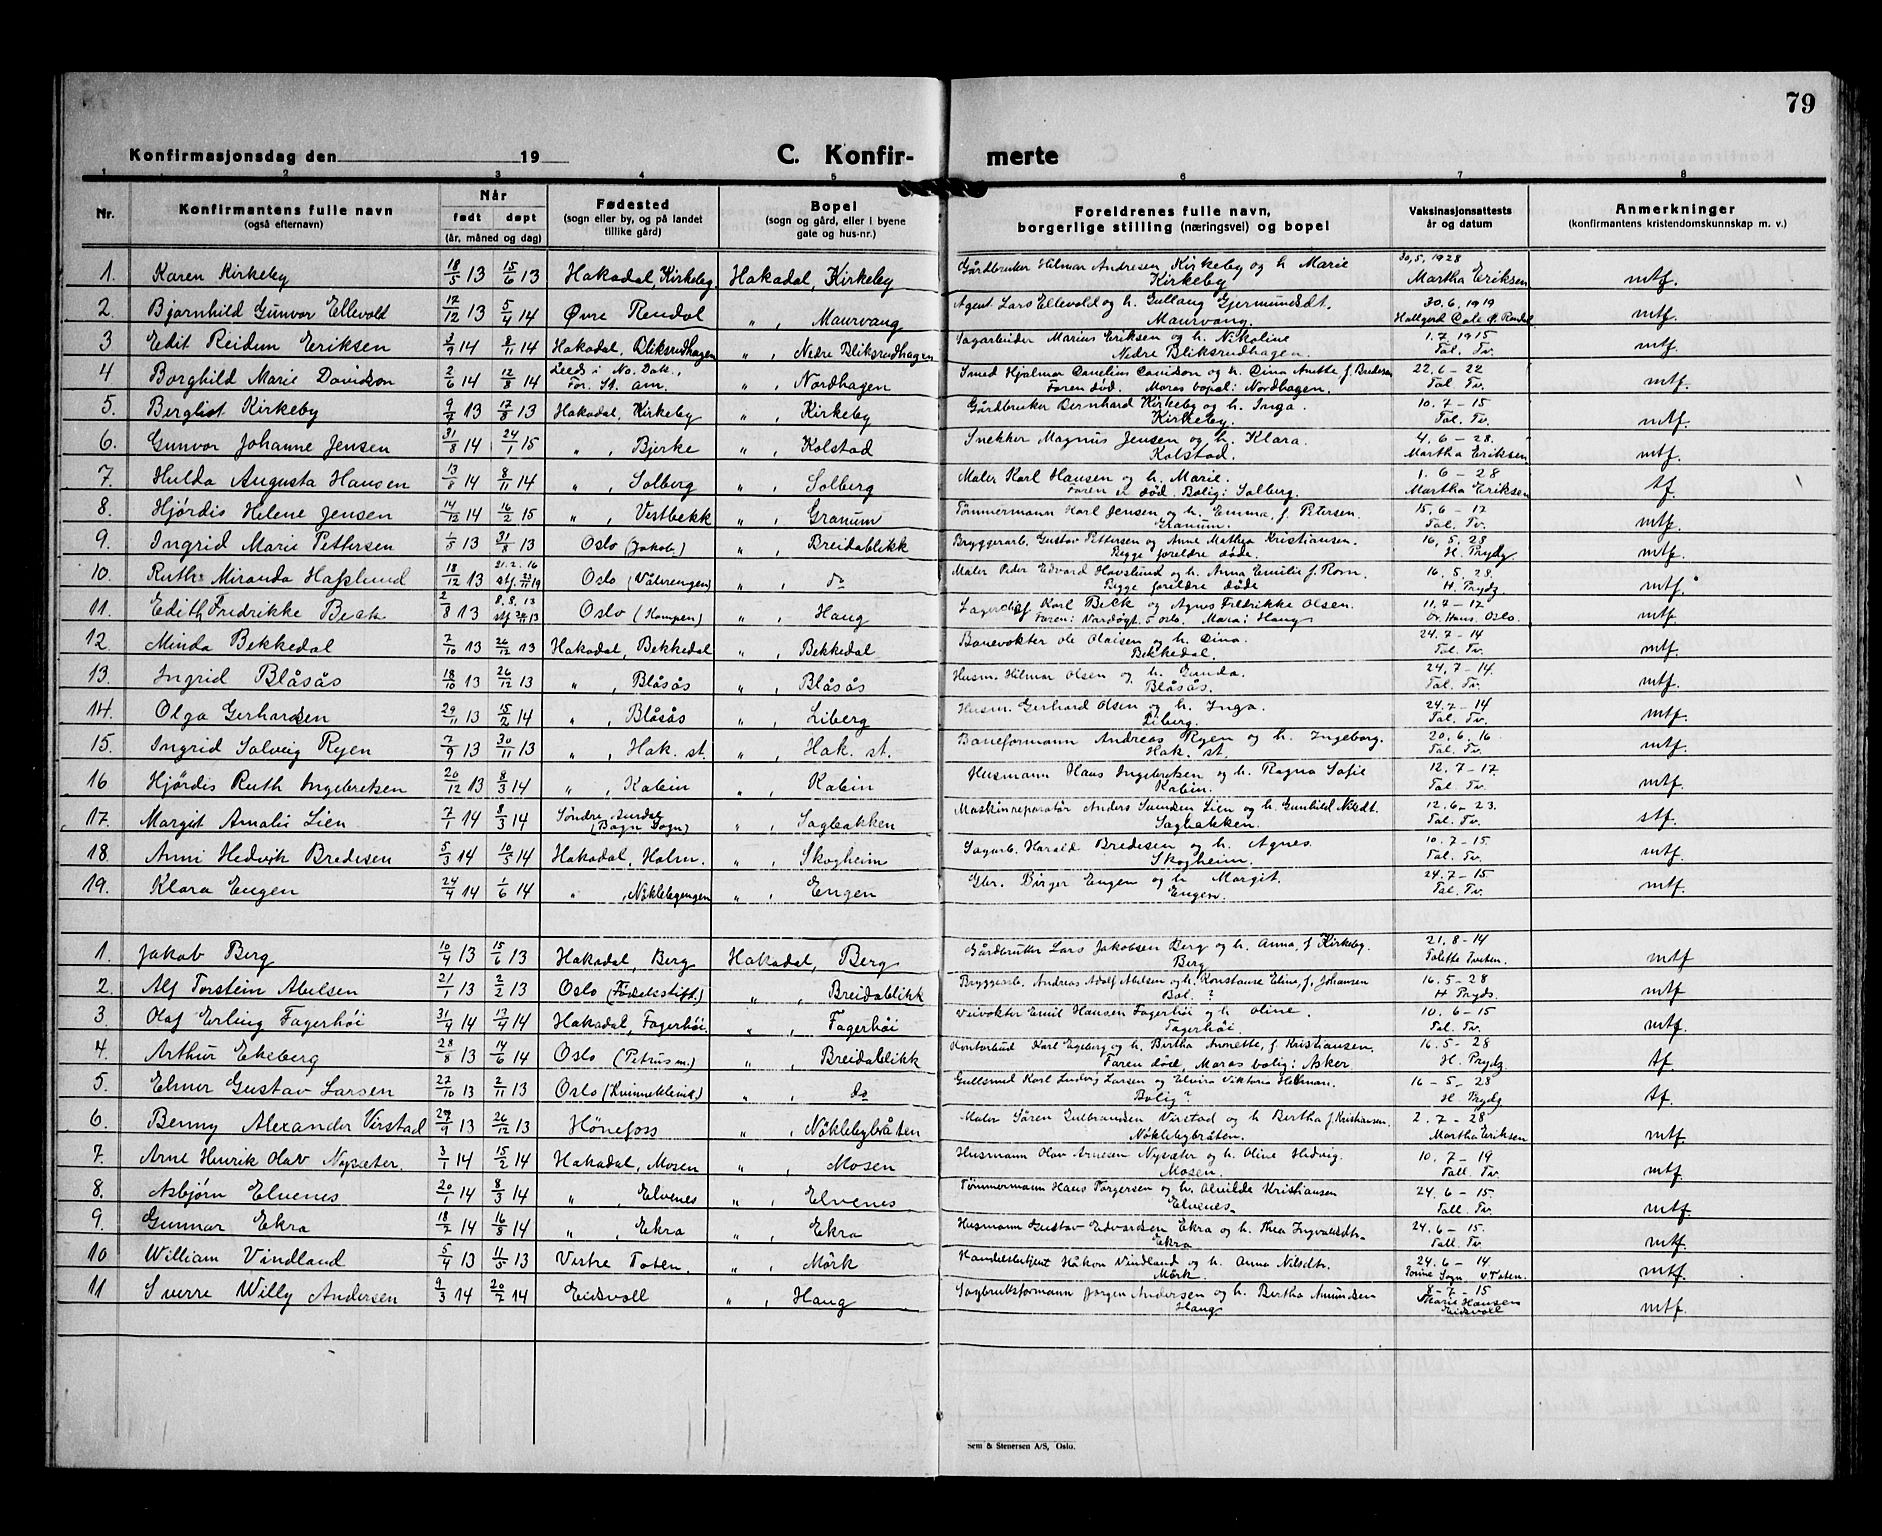 79
Konfirmasjonsdag den 19
C. Konfir- merte
1 2 3 4 5 6 7 8
Nr.
Konfirmantens fulle navn
(også efternavn)
Når
født døpt
(år, måned og dag)
Fødested
(sogn eller by, og på landet
tillike gård)
Bopel
(sogn og gård, eller i byene
gate og hus-nr.)
Foreldrenes fulle navn,
borgerlige stilling (næringsvei) og bopel
Vaksinasjonsattests
år og datum
Anmerkninger
(konfirmantens kristendomskunnskap m. v.)
1. Karen Kirkeby 18/5 13 15/6 13 Hakadal, Kirkeby. Hakadal, Kirkeby Gårdbruker Hilmar Andresen Kirkeby og h. Marie 30.5.1928 mtf.
Kirkeby Martha Eriksen
2. Bjørnhild Gunvor Ellevold 17/12 13 5/4 14 Øvre Rendal " , Maurvang Agent Lars Ellevold og h. Gullaug Gjermundsdt. 30.6.1919 mtf.
Maurvang. Hallgerd Øvre Rendal
3 Edit Reidun Eriksen 3/9 14 8/11 14 Hakadal, Bliksrudhagen " , Nedre Bliksrudhagen Sagarbeider Marius Eriksen og h. Nikoline 1.7.1915 mtf.
Nedre Bliksrudhagen. Tal. Tv.
4 Borghild Marie Davidson 2/6 14 12/8 14 Leeds i No. Dak., For. St. Am. " , Nordhagen Smed Hjalmar Cornelius Davidson og h. Dina Anette f. Bredesen 22.6-22 mtf.
Faren død. Moras bopel: Nordhagen. Tal Tv.
5. Bergliot Kirkeby 9/2 13 17/8 13 Hakadal, Kirkeby " , Kirkeby Gårdbruker Bernhard Kirkeby og h. Inga. 10.7-15 mtf.
Kirkeby. Tal. Tv.
6. Gunvor Johanne Jensen 31/8 14 24/1 15 " , Bjerke " , Kolstad Snekker Magnus Jensen og h. Klara. 4.6-28. mtf.
Kolstad. Martha Eriksen
7. Hulda Augusta Hansen 13/8 14 8/11 14 " , Solberg " , Solberg Maler Karl Hansen og h. Marie. 1.6-28 tf.
Faren er død. Bolig: Solberg. Martha Eriksen
8. Hjørdis Helene Jensen 14/12 14 16/2 15 " , Vestbekk " , Granum Tømmermann Karl Jensen og h. Emma, f. Petersen. 15.6-17 mtf.
Granum. Tal. Tv.
9. Ingrid Marie Pettersen 1/5 13 31/8 13 Oslo (Jakob.) " , Breidablikk Bryggerarb. Gustav Pettersen og Anne Mathea Kristiansen. 16.5.28 mtf.
Begge foreldre døde. H. Prydz
10. Ruth Miranda Hafslund 18/12 13 21.2.16 Oslo (Vålerengen) " , do Maler Peder Edvard Havslund og h. Anna Emilie f. Rom. 16.5.28. mtf.
Begge foreldre døde H. Prydz
11. Edith Fredrikke Beck 2/8 13 8.8.13 Oslo (Kampen) " , Haug Karl Beck og Agnes Fredrikke Olsen. 11.7-17 mtf.
Faren: Oslo. Mora: Haug Oslo.
12 Minda Bekkedal 7/10 13 26/12 13 Hakadal, Bekkedal " , Bekkedal Banevokter Ole Olaisen og h. Dina. 24.7-14 mtf.
Bekkedal. Tal. Tv.
13. Ingrid Blåsås 18/10 13 26/12 13 " , Blåsås " , Blåsås Husm. Hilmar Olsen og h. Gunda. 24.7-14. mtf.
Blåsås. Tal. Tv.
14. Olga Gerhardsen 29/11 13 15/2 14 " , Blåsås " , Liberg Husm. Gerhard Olsen og h. Inga. 24.7-14 mtf.
Liberg. Tal. Tv.
15. Ingrid Solveig Ryen 7/9 13 30/11 13 " , Hak. st. " , Hak. st. Baneformann Andreas Ryen og h. Ingeborg. 20.6.16 mtf.
Hak. st. Tal. Tv.
16 Hjørdis Ruth Ingebretsen 20/12 13 8/3 14 " , Kabin " , Kabin Husmann Hans Ingebretsen og h. Ragna Sofie 12.7-17. mtf.
Kabin. Tal. Tv.
17. Margit Amalie Lien 7/1 14 8/3 14 Søndre Aurdal (Bagn Sogn) " , Sagbakken Maskinreparatør Anders Svendsen Lien og h. Gunhild Nilsdt. 12.6-23. stf.
Sagbakken. Tal. Tv.
18. Anni Hedvik Bredesen 5/3 14 10/5 14 Hakadal, Holm. " , Skogheim Sagarb. Harald Bredesen og h. Agnes 10.7-15. mtf.
Skogheim. Tal. Tv.
19. Klara Engen 24/4 14 1/6 14 " , Nøklebyengen " , Engen Gbr. Birger Engen og h. Margit. 24.7-15 mtf.
Engen. Tal. Tv.
1. Jakob Berg 10/4 13 15/6 13 Hakadal, Berg Hakadal, Berg Gårdbruker Lars Jakobsen Berg og h. Anna, f. Kirkeby. 21.8-14 mtf
Berg Tveten.
2. Alf Torstein Abelsen 21/1 13 2/2 13 Oslo (Fødselsstift.) " , Breidablikk Bryggearb. Andreas Adolf Abelsen og h. Konstanse Eline, f. Johansen 16.5-28 mtf
Bol. ? H Prydz.
3 Olaf Erling Fagerhøi 31/4 14 13/4 14 Hakadal, Fagerhøi. " , Fagerhøi Veivokter Emil Hansen Fagerhøi og h. Oline. 10.6-15 mtf
Fagerhøi. Tal. Tv.
4. Arthur Ekeberg 28/8 13 14/6 14 Oslo (Petrus m.) " , Breidablikk Kontorbud Karl Egeberg og h. Birtha Annette, f. Kristiansen. 16.5-28 tf
Faren død, Moras bolig: Asker H. Prydz
5. Elmer Gustav Larsen 27/10 13 2/11 13 Oslo (Kvinneklinik.) " , do Gullsmed Karl Ludvig Larsen og Elvira Viktoria Helman. 16-5-28 tf
Bolig? H. Prydz
6. Benny Alexander Virstad 29/9 13 26/12 13 Hønefoss " , Nøklebybråten Maler Søren Gulbrandsen Virstad og h Bertha f. Kristiansen. 2.7-28 mtf
Nøklebybråten. Martha Eriksen
7. Arne Henrik Olav Nysæter. 3/1 14 15/2 14 Hakadal, Mosen " , Mosen Husmann Olav Arnesen Nysæter og h. Oline Hedvig. 10.7-19 mtf
Mosen. Tall. Tv.
8. Asbjørn Elvenes 20/1 14 8/3 14 " , Elvenes " , Elvenes Tømmermann Hans Torgersen og h. Alvilde Kristiansen 24.6-15. mtf
Elvenes. Tall. Tv.
9. Gunnar Ekra 18/2 14 16/8 14 " , Ekra " , Ekra Husmann Gustav Edvardsen Ekra og h. Thea Ingvaldsdtr. 24.6-15. mtf
Ekra Tall. Tv.
10 William Vindland 5/4 13 11/5 13 Vestre Toten. " , Mørk Handelsbetjent Håkon Vindland og h. Anna Nilsdtr. 24.6-14 mtf
Mørk. Sogn. V. Toten.
11 Sverre Willy Andersen 9/3 14 20/7 14 Eidsvoll " , Haug Sagbruksformann Jørgen Andersen og h. Bertha Amundsen 8-7-15 mtf.
Haug Marie Hansen
Eidsvoll
Sem & Stenersen A/S, Oslo.